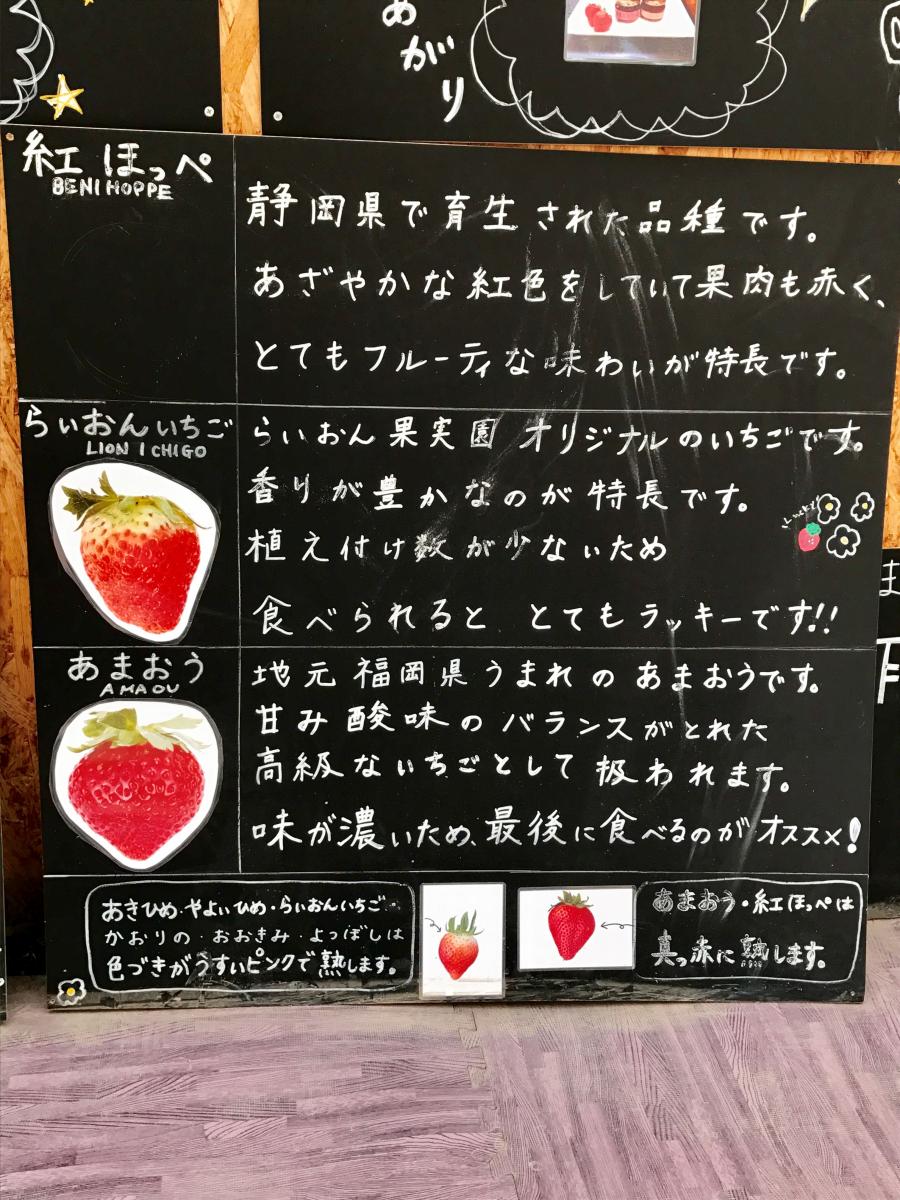 めがり
紅ほっぺ
BENIHOPPE
静岡県で育生された品種です。
あざやかな紅色をしていて果肉も赤く、
とてもフルーティな味わいが特長です。
らいおんいちご
LION ICHIGO
らいおん果実園 オリジナルのいちごです。
香りが豊かなのが特長です。
植え付け数が少ないため
食べられると とてもラッキーです!!
Lucky!
あまおう
AMAOU
地元福岡県うまれのあまおうです。
甘み酸味のバランスがとれた
高級ないちごとして扱われます。
味が濃いため、最後に食べるのがオススメ!
あきひめ・やよいひめ・らいおんいちご・
かおりの・おおきみ・よつぼしは
色づきがうすいピンクで熟します。
あまおう・紅ほっぺは
真っ赤に熟します。